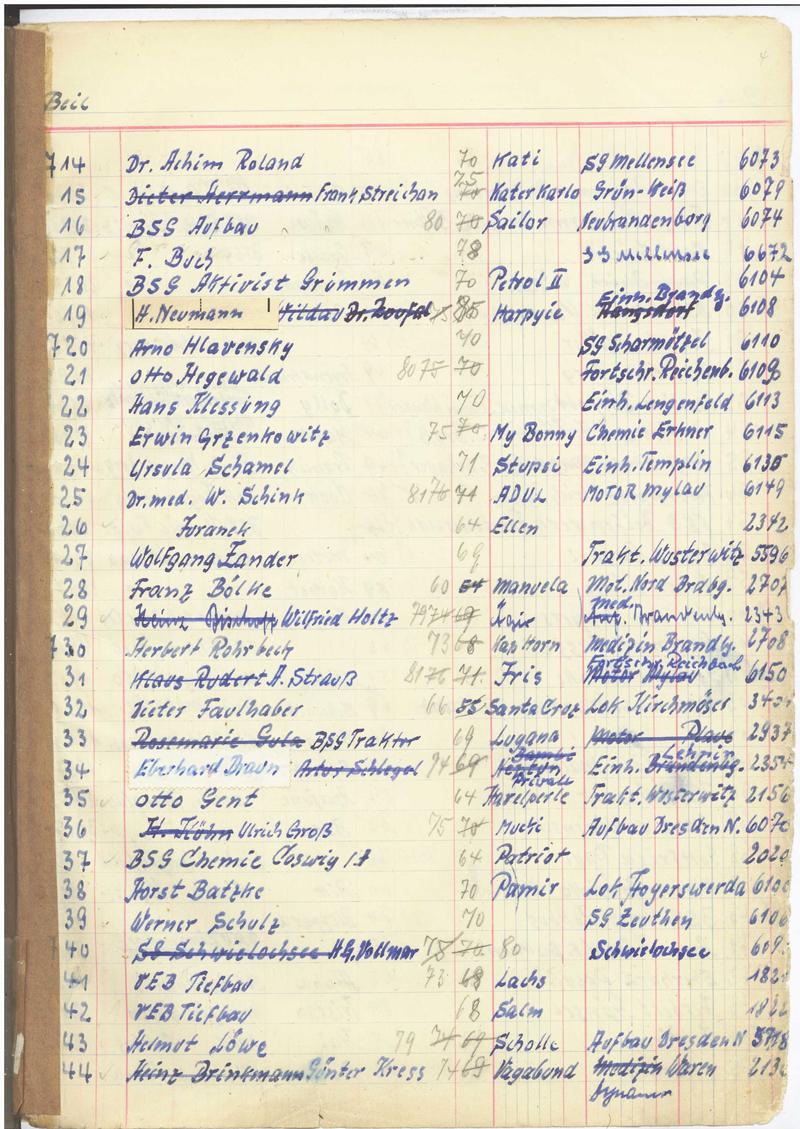 4
Beil
714 Dr. Achim Roland 70 Kati SG Mellensee 6073
15 Dieter Herrmann Frank Streichan 75 70 Kater Karlo Grün-Weiß 6079
16 BSG Aufbau 80 70 Sailor Neubrandenburg 6074
17 F. Buch 78 SG Mellensee 6672
18 BSG Aktivist Grimmen 70 Petrol II 6104
19 H. Neumann Wildau Dr. Zoufal 85 Harpyie Einh. Brandbg. 6108
720 Arno Hlavensky 70 SG Scharmützel 6110
21 Otto Hegewald 80 75 70 Fortschr. Reichenb. 6109
22 Hans Klessung 70 Einh. Lengenfeld 6113
23 Erwin Grzenkowitz 75 70 My Bonny Chemie Erkner 6115
24 Ursula Schamel 71 Stupsi Einh. Templin 6135
25 Dr. med. W. Schink 81 76 71 ADUL MOTOR Mylau 6149
26 Juranek 64 Ellen 2342
27 Wolfgang Zander 69 Trakt. Wusterwitz 5596
28 Franz Bölke 60 64 Manuela Mot. Nord Brdbg. 2707
29 Heinz Bischoff Wilfried Holtz 79 74 69 med. Brandenbg. 2343
730 Herbert Rohrbeck 73 68 Kap Horn Medizin Brandbg. 2708
31 Klaus Rudert A. Strauß 81 76 71 Iris Fortschr. Reichbach Motor Mylau 6150
32 Dieter Faulhaber 66 55 Santa Cruz Lok Kirchmöser
33 Rosemarie Gula BSG Traktor 69 Lugana Motor Plaue 2937
34 Eberhard Braun Artur Schlegel 74 69 Bambi Neptun Privale Einh. Brandenbg. Lehnin 2354
35 Otto Gent 64 Havelperle Trakt. Wusterwitz 2156
36 H. Köhn Ulrich Groß 75 70 Mucki Aufbau Dresden N. 607
37 BSG Chemie Coswig 64 Patriot 202
38 Horst Batzke 70 Pamir Lok Hoyerswerda 610
39 Werner Schulz 70 SG Zeuthen 610
740 SG Schwielochsee H.G. Vollmar 75 70 80 Schwielochsee 609
41 VEB Tiefbau 73 68 Lachs 182
42 VEB Tiefbau 68 Salm 182
43 Helmut Löwe 79 74 69 Scholle Aufbau Dresden N
44 Heinz Brinkmann Günter Kress 74 69 Vagabund Medizin Waren 213
Dynamo